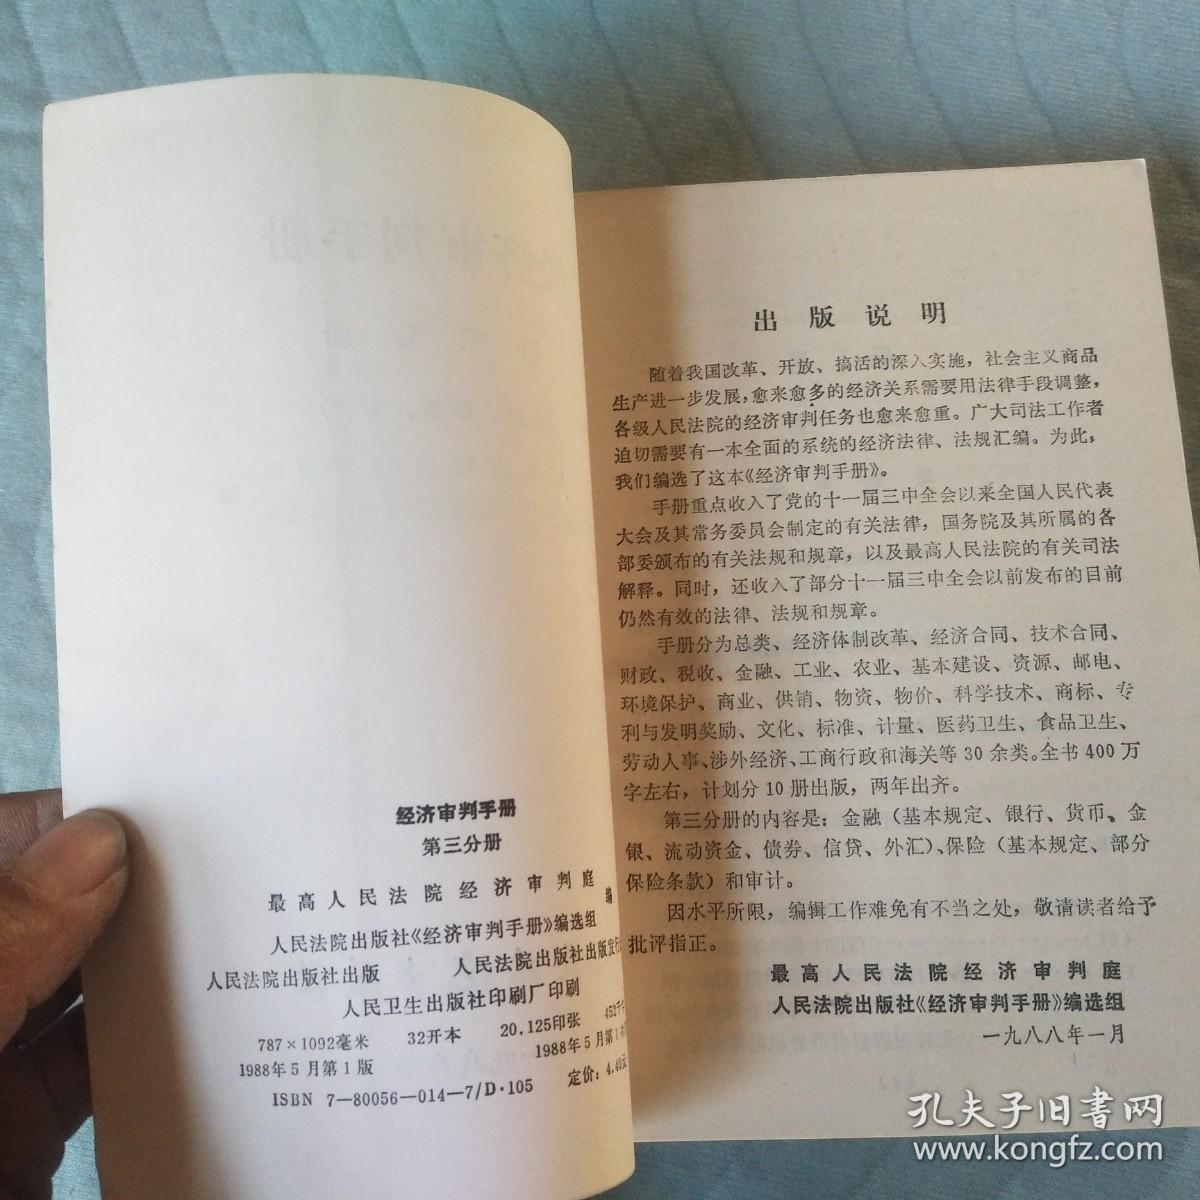 经济审判手册
第三分册
最高人民法院经济审判庭 编
人民法院出版社《经济审判手册》编选组
人民法院出版社出版 人民法院出版社出版发行
人民卫生出版社印刷厂印刷
787×1092毫米 32开本 20.125印张 452千
1988年5月第1版 1988年5月第1
ISBN 7—80056—014—7/D·105 定价：4.40元
出版说明
随着我国改革、开放、搞活的深入实施，社会主义商品
生产进一步发展，愈来愈多的经济关系需要用法律手段调整，
各级人民法院的经济审判任务也愈来愈重。广大司法工作者
迫切需要有一本全面的系统的经济法律、法规汇编。为此，
我们编选了这本《经济审判手册》。
手册重点收入了党的十一届三中全会以来全国人民代表
大会及其常务委员会制定的有关法律，国务院及其所属的各
部委颁布的有关法规和规章，以及最高人民法院的有关司法
解释。同时，还收入了部分十一届三中全会以前发布的目前
仍然有效的法律、法规和规章。
手册分为总类、经济体制改革、经济合同、技术合同、
财政、税收、金融、工业、农业、基本建设、资源、邮电、
环境保护、商业、供销、物资、物价、科学技术、商标、专
利与发明奖励、文化、标准、计量、医药卫生、食品卫生、
劳动人事、涉外经济、工商行政和海关等30余类。全书400万
字左右，计划分10册出版，两年出齐。
第三分册的内容是：金融（基本规定、银行、货币、金
银、流动资金、债券、信贷、外汇）、保险（基本规定、部分
保险条款）和审计。
因水平所限，编辑工作难免有不当之处，敬请读者给予
批评指正。
最高人民法院经济审判庭
人民法院出版社《经济审判手册》编选组
一九八八年一月
孔夫子旧书网
www.kongfz.com